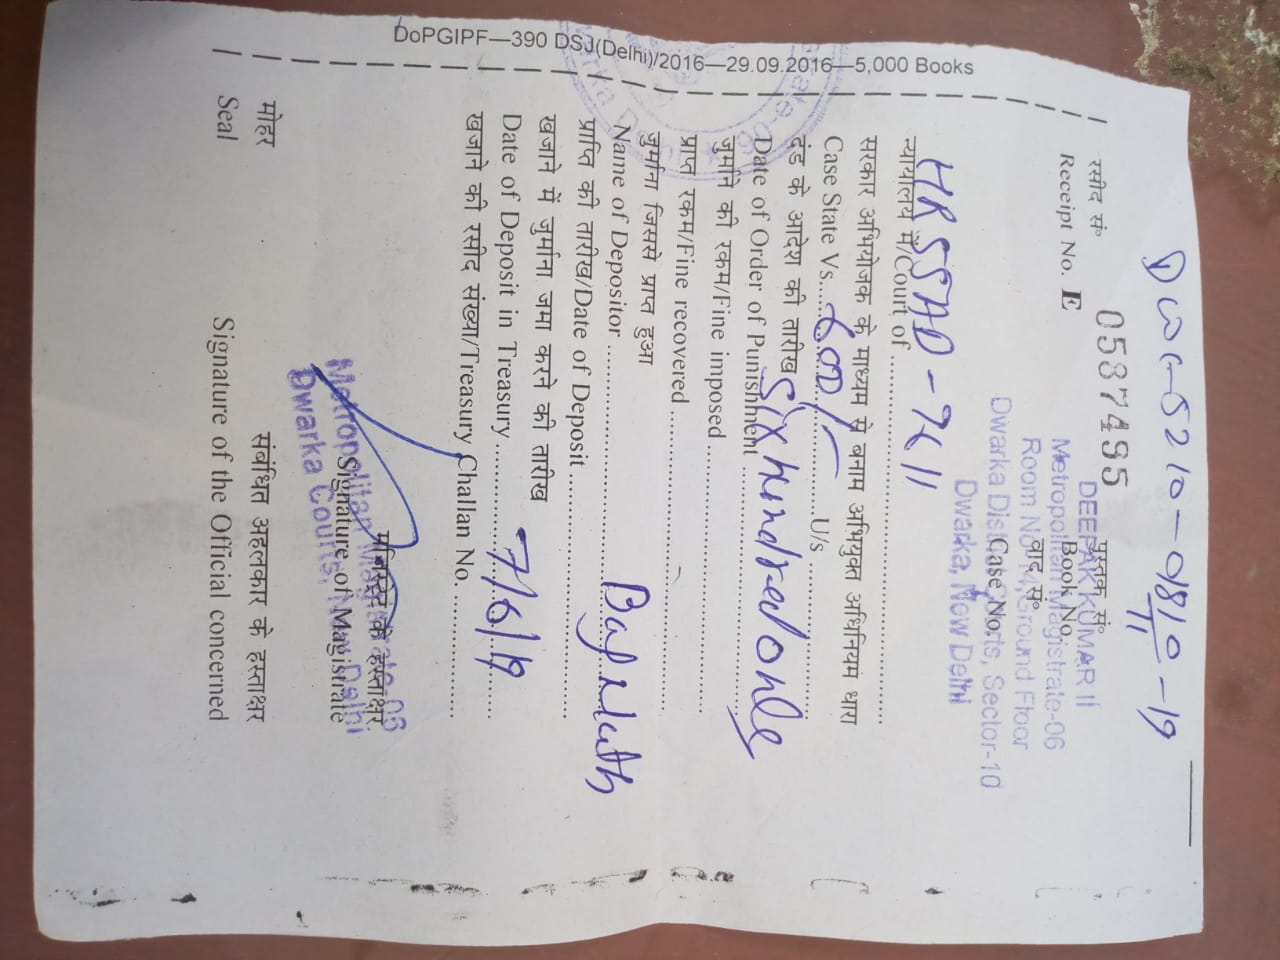 DWC-5210-0810-19
11
रसीद सं० 0587495 पुस्तक सं०
Receipt No. E Book No.
DEEPAK KUMAR II
Metropolitan Magistrate-06
Room No. Ground Floor
वाद सं०
Case No.
Dwarka District Courts, Sector-10
Dwarka, New Delhi
न्यायालय में/Court of
सरकार अभियोजक के माध्यम से बनाम अभियुक्त अधिनियम धारा
Case State Vs. U/s
600/-
दंड के आदेश की तारीख
Date of Order of Punishment
Six hundred only
जुर्माने की रकम/Fine imposed
प्राप्त रकम/Fine recovered
जुर्माना जिससे प्राप्त हुआ
Name of Depositor
प्राप्ति की तारीख/Date of Deposit
खजाने में जुर्माना जमा करने की तारीख
Date of Deposit in Treasury 7/6/19
खजाने की रसीद संख्या/Treasury Challan No.
मजिस्ट्रेट के हस्ताक्षर
Signature of Magistrate
Metropolitan Magistrate-06
Dwarka Courts, New Delhi
मोहर संबंधित अहलकार के हस्ताक्षर
Seal Signature of the Official concerned
DoPGIPF—390 DSJ(Delhi)/2016—29.09.2016—5,000 Books